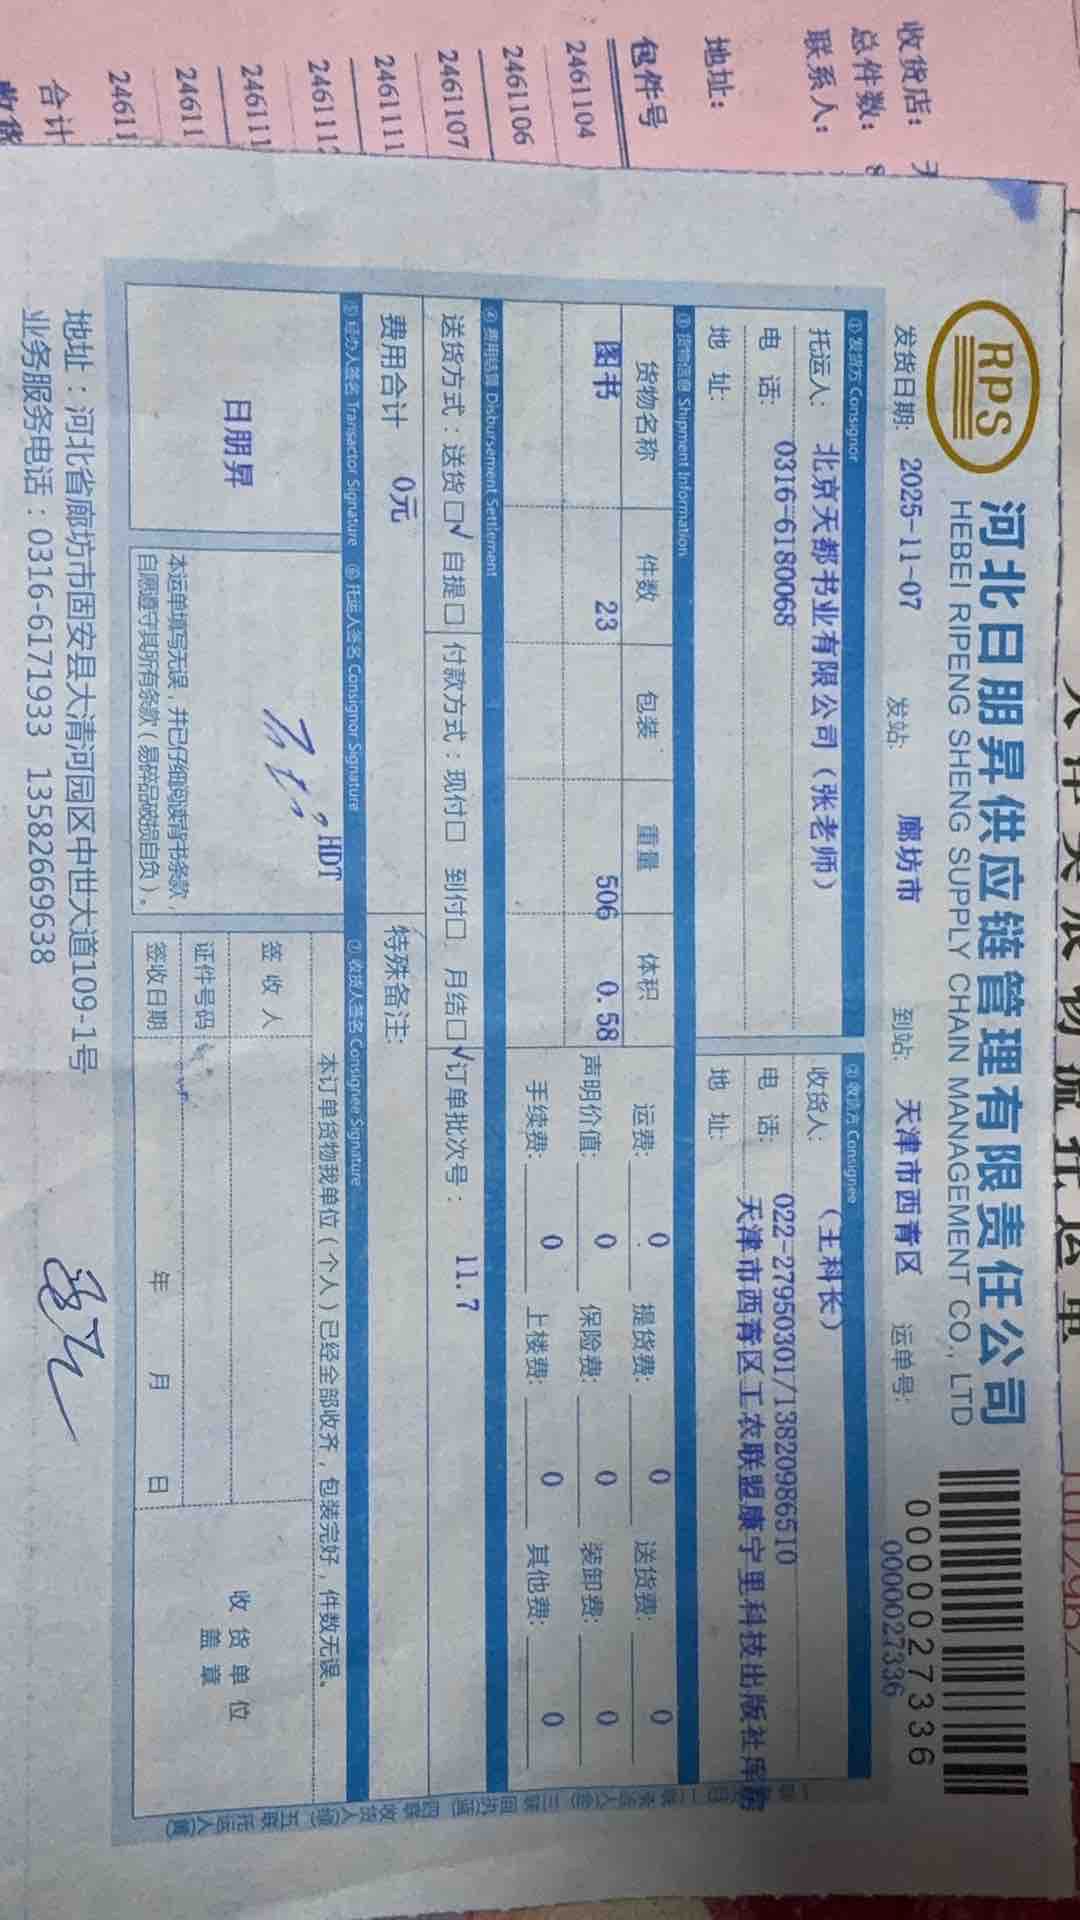 收货店：
总件数： 8
联系人：
地址：
包件号
2461104
2461106
2461107
2461111
246111
246111
24611
24611
合计
RPS
河北日朋昇供应链管理有限责任公司
HEBEI RIPENG SHENG SUPPLY CHAIN MANAGEMENT CO., LTD
0000027336
发货日期： 2025-11-07 发站： 廊坊市 到站： 天津市西青区 运单号： 0000027336
① 发货方 Consignor ② 收货方 Consignee
托运人： 北京天都书业有限公司（张老师） 收货人： （王科长）
电 话： 0316-6180068 电 话： 022-27950301/13820986510
地 址： 地 址： 天津市西青区工农联盟康宁里科技出版社库房
③ 货物信息 Shipment Information
货物名称 件数 包装 重量 体积 运费： 0 提货费： 0 送货费： 0
图书 23 506 0.58 声明价值： 0 保险费： 0 装卸费： 0
手续费： 0 上楼费： 0 其他费： 0
④ 费用结算 Disbursement Settlement
送货方式：送货□√ 自提□ 付款方式：现付□ 到付□ 月结□√ 订单批次号： 11.7
费用合计 0元 特殊备注：
⑤ 经办人签名 Transactor Signature ⑥ 托运人签名 Consignor Signature ⑦ 收货人签名 Consignee Signature
HDT
本订单货物我单位（个人）已经全部收齐，包装完好，件数无误。
日朋昇
签 收 人
证件号码
签收日期 年 月 日
收 货 单 位
盖 章
本运单填写无误，并已仔细阅读背书条款，
自愿遵守其所有条款（易碎品破损自负）。
地址：河北省廊坊市固安县大清河园区中世大道109-1号
业务服务电话：0316-6171933 13582669638